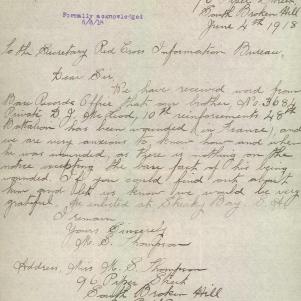 South Broken Hill
June 4th 1918
Formally acknowledged
6/8/18
To the Secretary Red Cross Information Bureau,
Dear Sir,
We have received word from
Base Records Office that my brother, No. 3684
Private D. J. McLeod, 10th reinforcements 48th
Battalion has been wounded (in France), and
we are very anxious to know how and when
he was wounded, as there is nothing on the
notice excepting the bare fact of his being
wounded. If you could find out about
him and let us know we would be very
grateful. He enlisted at Streaky Bay. S.A.
I remain
Yours Sincerely
M. S. Thompson
Address, Miss M. S. Thompson
96 Piper Street
South Broken Hill